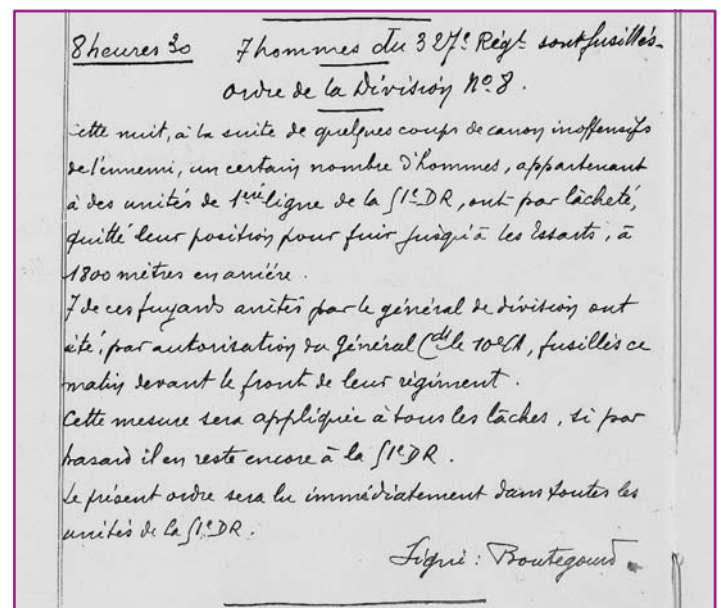 8 heures 30 7 hommes du 327e Régt sont fusillés.
ordre de la Division No 8.
Cette nuit, à la suite de quelques coups de canon inoffensifs
de l'ennemi, un certain nombre d'hommes, appartenant
à des unités de 1ère ligne de la 51e DR, ont par lâcheté,
quitté leur position pour fuir jusqu'à les Essarts, à
1800 mètres en arrière.
7 de ces fuyards arrêtés par le général de division ont
été, par autorisation du Général Cdt le 10e CA, fusillés ce
matin devant le front de leur régiment.
Cette mesure sera appliquée à tous les lâches, si par
hasard il en reste encore à la 51e DR.
Le présent ordre sera lu immédiatement dans toutes les
unités de la 51e DR.
Signé : Boutegourd.